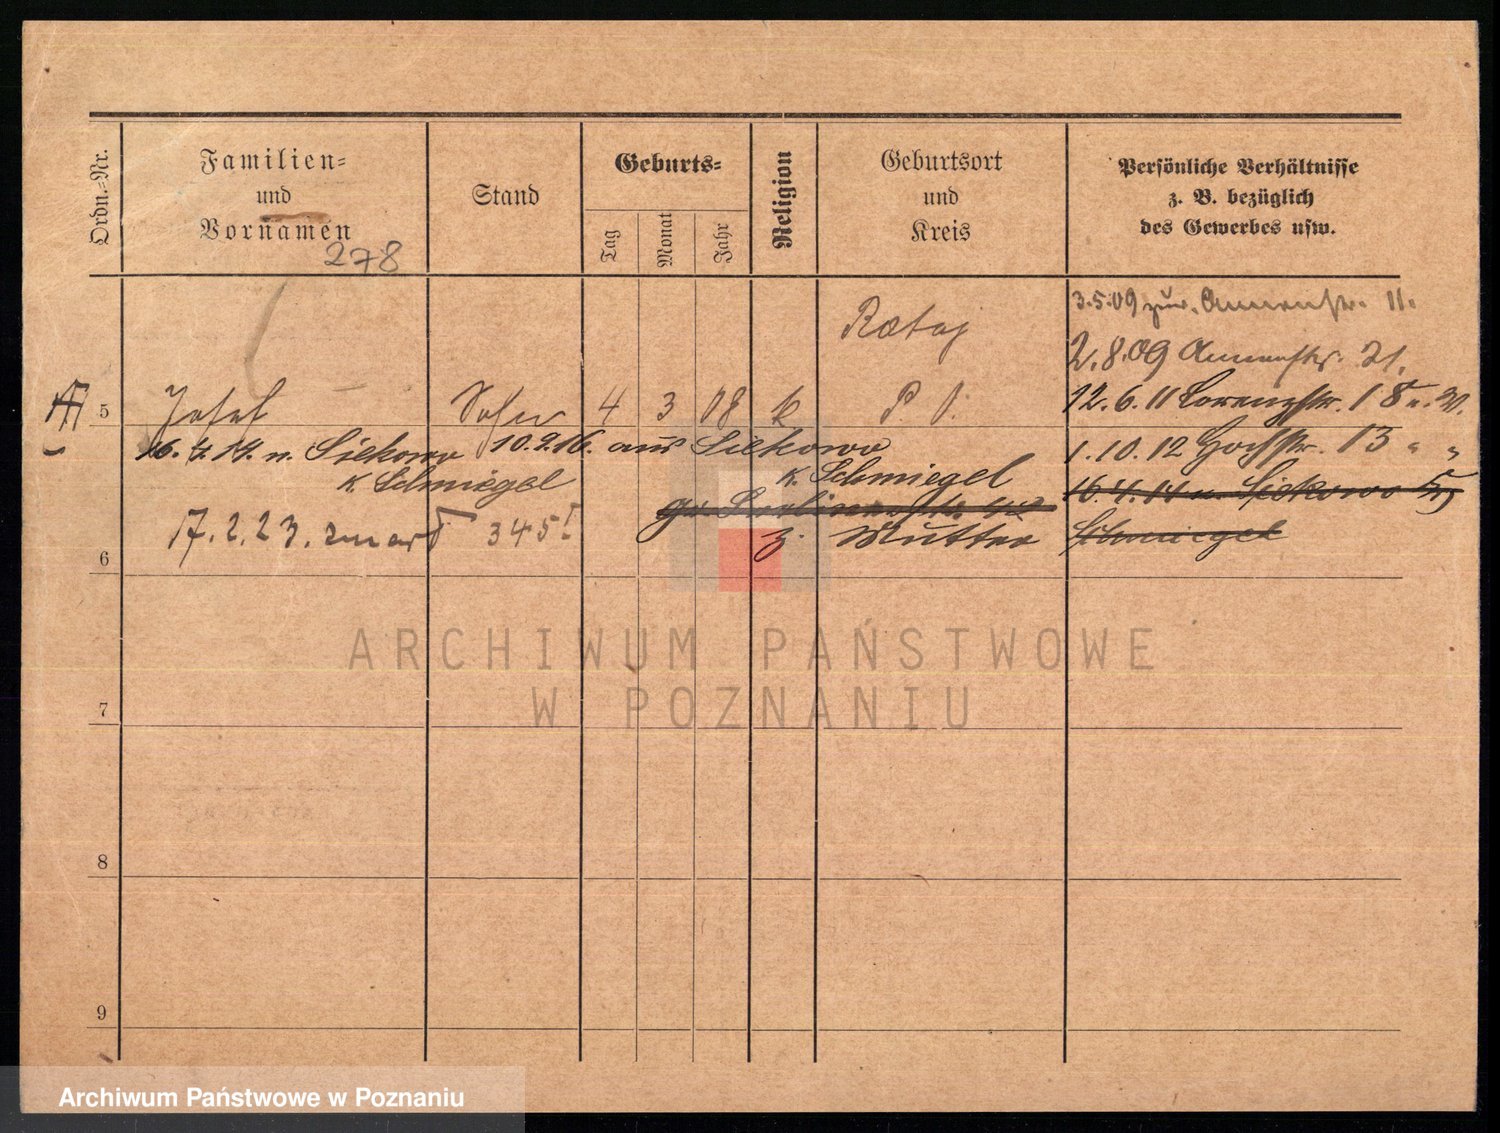 Ordn.=Nr.
Familien=
und
Vornamen
278
Stand
Geburts=
Tag
Monat
Jahr
Religion
Geburtsort
und
Kreis
Persönliche Verhältnisse
z. B. bezüglich
des Gewerbes usw.
3.5.09 zur. Annenstr. 11.
Rataj
2.8.09 Annenstr. 21.
5
Josef
Sohn
4
3
08
k
P. O.
12.6.11 Lorenzstr. 18
16. 4. 14. n. Siekowo
10.2.16. aus Siekowo
1.10.12 Hochstr. 13 " "
K. Schmiegel
K. Schmiegel
16.4.14 n. Siekowo
Schmiegel
17. 2. 23.
345
z. Mutter
6
7
8
9
ARCHIWUM PAŃSTWOWE
W POZNANIU
Archiwum Państwowe w Poznaniu